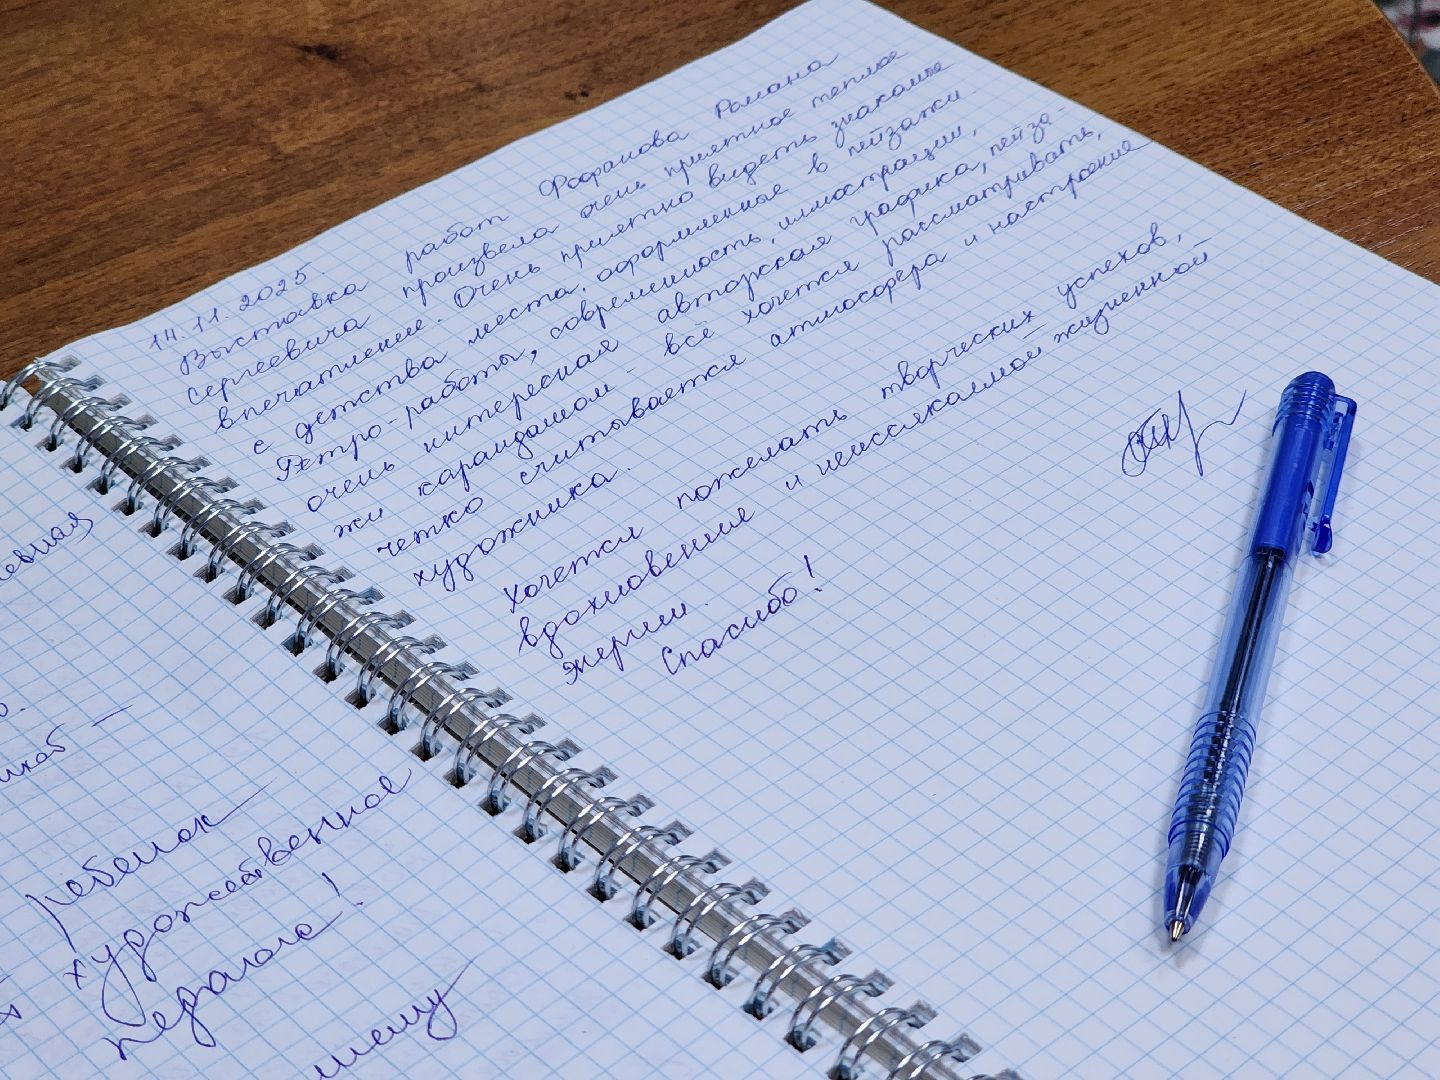 14.11.2025.
Выставка работ Фофанова Романа
Сергеевича произвела очень приятное теплое
впечатление. Очень приятно видеть знакомые
с детства места, оформленные в пейзажи.
Ретро-работы, современность, иллюстрации,
очень интересная авторская графика, пейза-
жи карандашом - всё хочется рассматривать,
четко считывается атмосфера и настроение
художника.
Хочется пожелать творческих успехов,
вдохновения и неиссякаемой жизненной
энергии.
Спасибо!
ребенок
художественное
педагога!